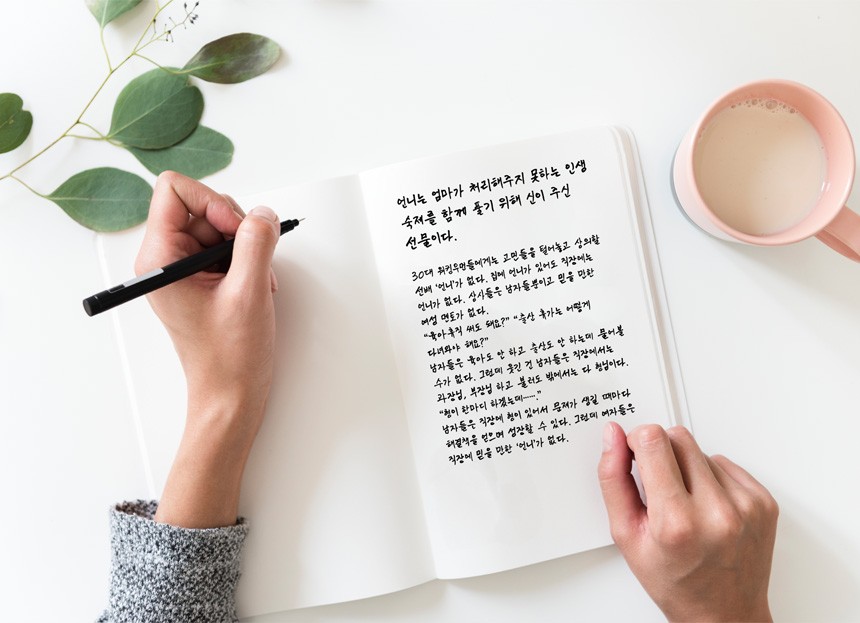 언니는 엄마가 처리해주지 못하는 인생
숙제를 함께 풀기 위해 신이 주신
선물이다.
30대 워킹우먼들에게는 고민들을 털어놓고 상의할
선배 '언니'가 없다. 집에 언니가 있어도 직장에는
언니가 없다. 상사들은 남자들뿐이고 믿을 만한
여성 멘토가 없다.
"육아휴직 써도 돼요?" "출산 휴가는 어떻게
다녀와야 해요?"
남자들은 육아도 안 하고 출산도 안 하는데 물어볼
수가 없다. 그런데 웃긴 건 남자들은 직장에서는
과장님, 부장님 하고 불러도 밖에서는 다 형님이다.
"형이 한마디 하겠는데……."
남자들은 직장에 형이 있어서 문제가 생길 때마다
해결책을 얻으며 성장할 수 있다. 그런데 여자들은
직장에 믿을 만한 '언니'가 없다.